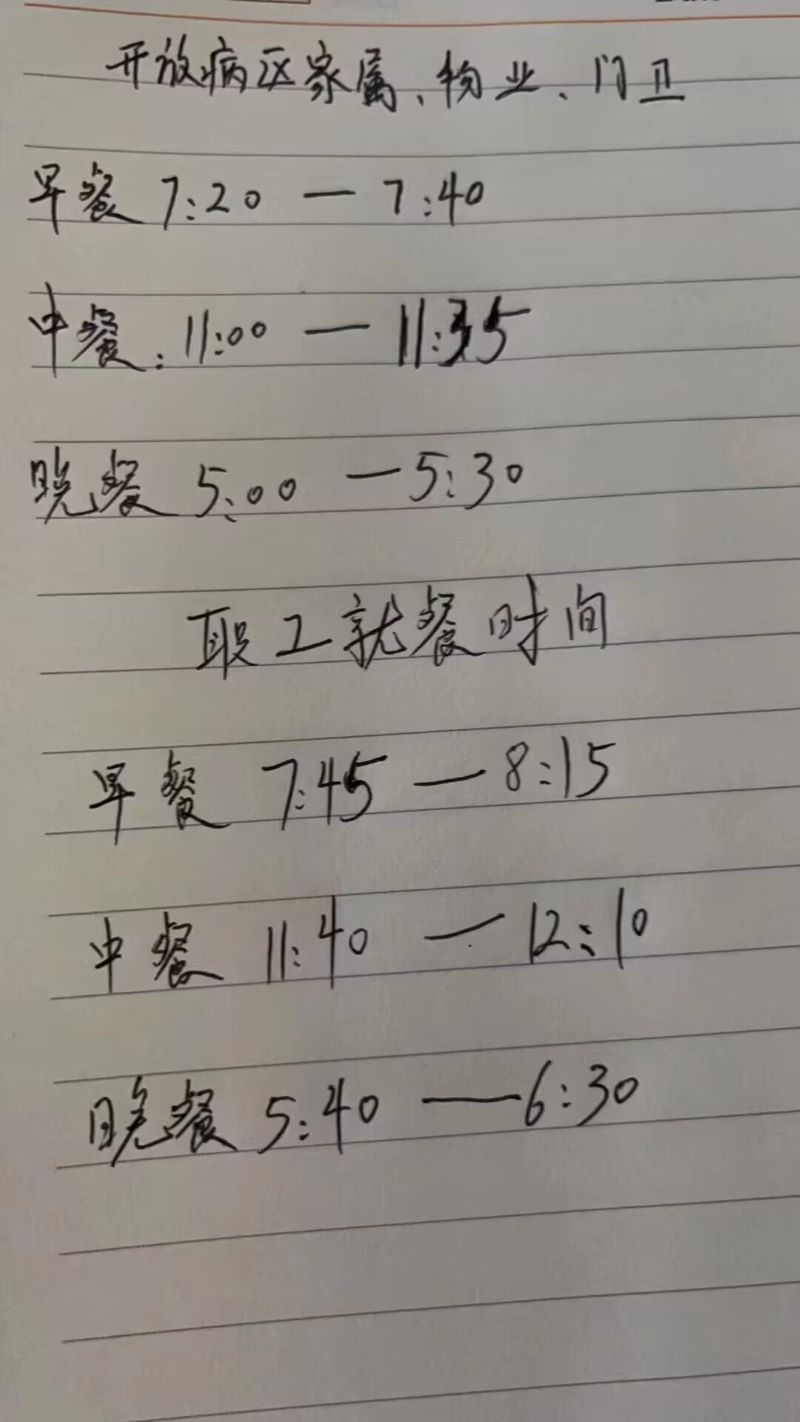 开放病区家属、物业、门卫
早餐 7:20 — 7:40
中餐:11:00 — 11:35
晚餐 5:00 — 5:30
职工就餐时间
早餐 7:45 — 8:15
中餐 11:40 — 12:10
晚餐 5:40 — 6:30